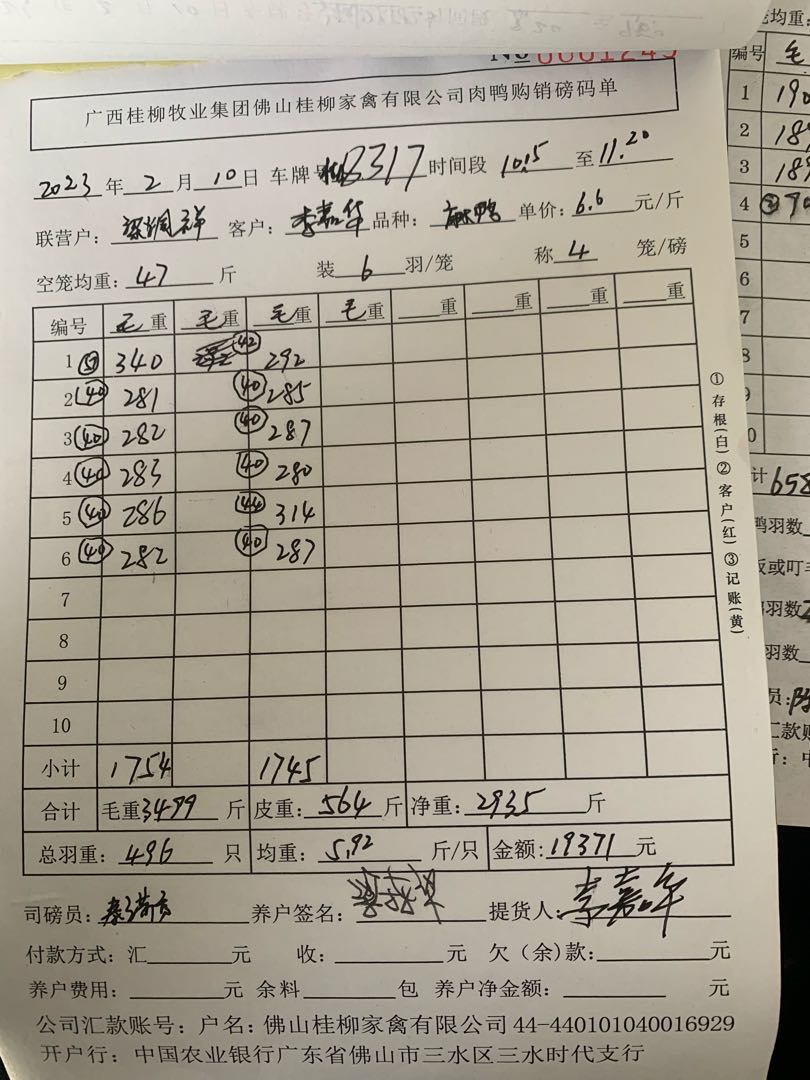 № 0001245
广西桂柳牧业集团佛山桂柳家禽有限公司肉鸭购销磅码单
2023 年 2 月 10 日 车牌号 8317 时间段 10.15 至 11.20
联营户: 客户: 李嘉华 品种: 单价: 6.6 元/斤
空笼均重: 47 斤 装 6 羽/笼 称 4 笼/磅
编号 毛重 毛重 毛重 毛重 重 重 重 重
1 340 42 292
2 40 281 40 285
3 40 282 40 287
4 40 283 40 280
5 40 286 44 314
6 40 282 40 287
7
8
9
10
小计 1754 1745
合计 毛重3499 斤 皮重: 564 斤 净重: 2935 斤
总羽重: 496 只 均重: 5.92 斤/只 金额: 19371 元
司磅员: 养户签名: 提货人: 李嘉华
付款方式: 汇 元 收: 元 欠(余)款: 元
养户费用: 元 余料 包 养户净金额: 元
公司汇款账号: 户名: 佛山桂柳家禽有限公司 44-440101040016929
开户行: 中国农业银行广东省佛山市三水区三水时代支行
①存根(白)②客户(红)③记账(黄)
笼均重:
编号 毛
1 190
2 189
3 189
4
5
6
7
8
9
0
计 658
鸭羽数
羽数
羽数
员:
汇款账
行: 中